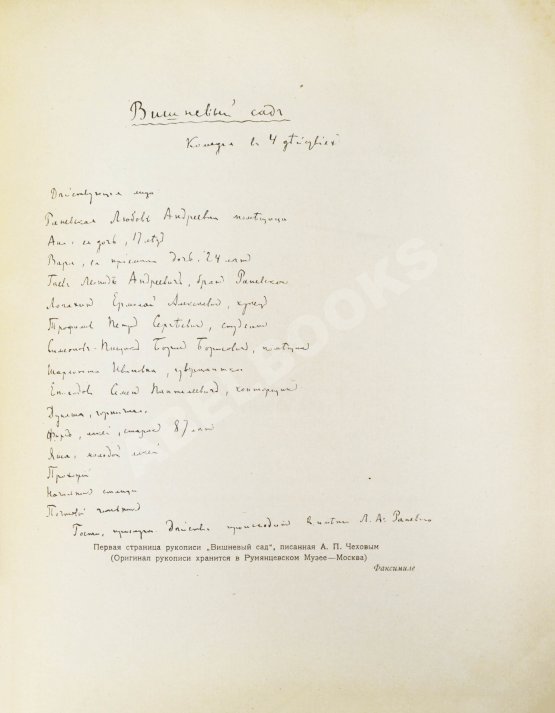 Вишневый садъ
Комедія в 4 дѣйствіях
Действующія лица
Раневская Любовь Андреевна помѣщица
Аня, ея дочь, 17 лѣт
Варя, ея приемная дочь, 24 лет
Гаев Леонидъ Андреевичъ, брат Раневской
Лопахин Ермолай Алексеевич, купец
Трофимов Петр Сергѣевич, студент
Симеонов-Пищик Борис Борисович, помѣщик
Шарлотта Ивановна, гувернантка
Епиходов Семен Пантелеевич, конторщик
Дуняша, горничная
Фирс, лакей, старик 87 лет
Яша, молодой лакей
Прохожий
Начальник станции
Почтовый чиновник
Гости, прислуга. Действие происходит в имении Л. А. Раневской
Первая страница рукописи „Вишневый сад", писанная А. П. Чеховым
(Оригинал рукописи хранится в Румянцевском Музее — Москва)
Факсимиле